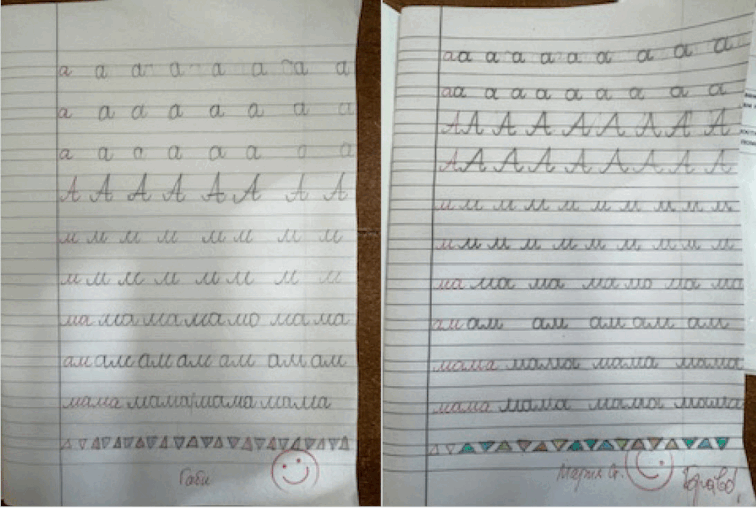 а а а а а а а а
а а а а а а а а
а а а а а а а а
А А А А А А А А
м м м м м м м м
м м м м м м м м
ма ма ма ма мо ма ма
ам ам ам ам ам ам ам
мама мама мама мама
Габи
аа а а а а а а а
аа а а а а а а а
АА А А А А А А А
АА А А А А А А А
м м м м м м м м м м
м м м м м м м м м м
ма ма ма ма мо ма ма
ам ам ам ам ам ам
мама мама мама мама
мама мама мама мама
Мария Ст.
Браво!